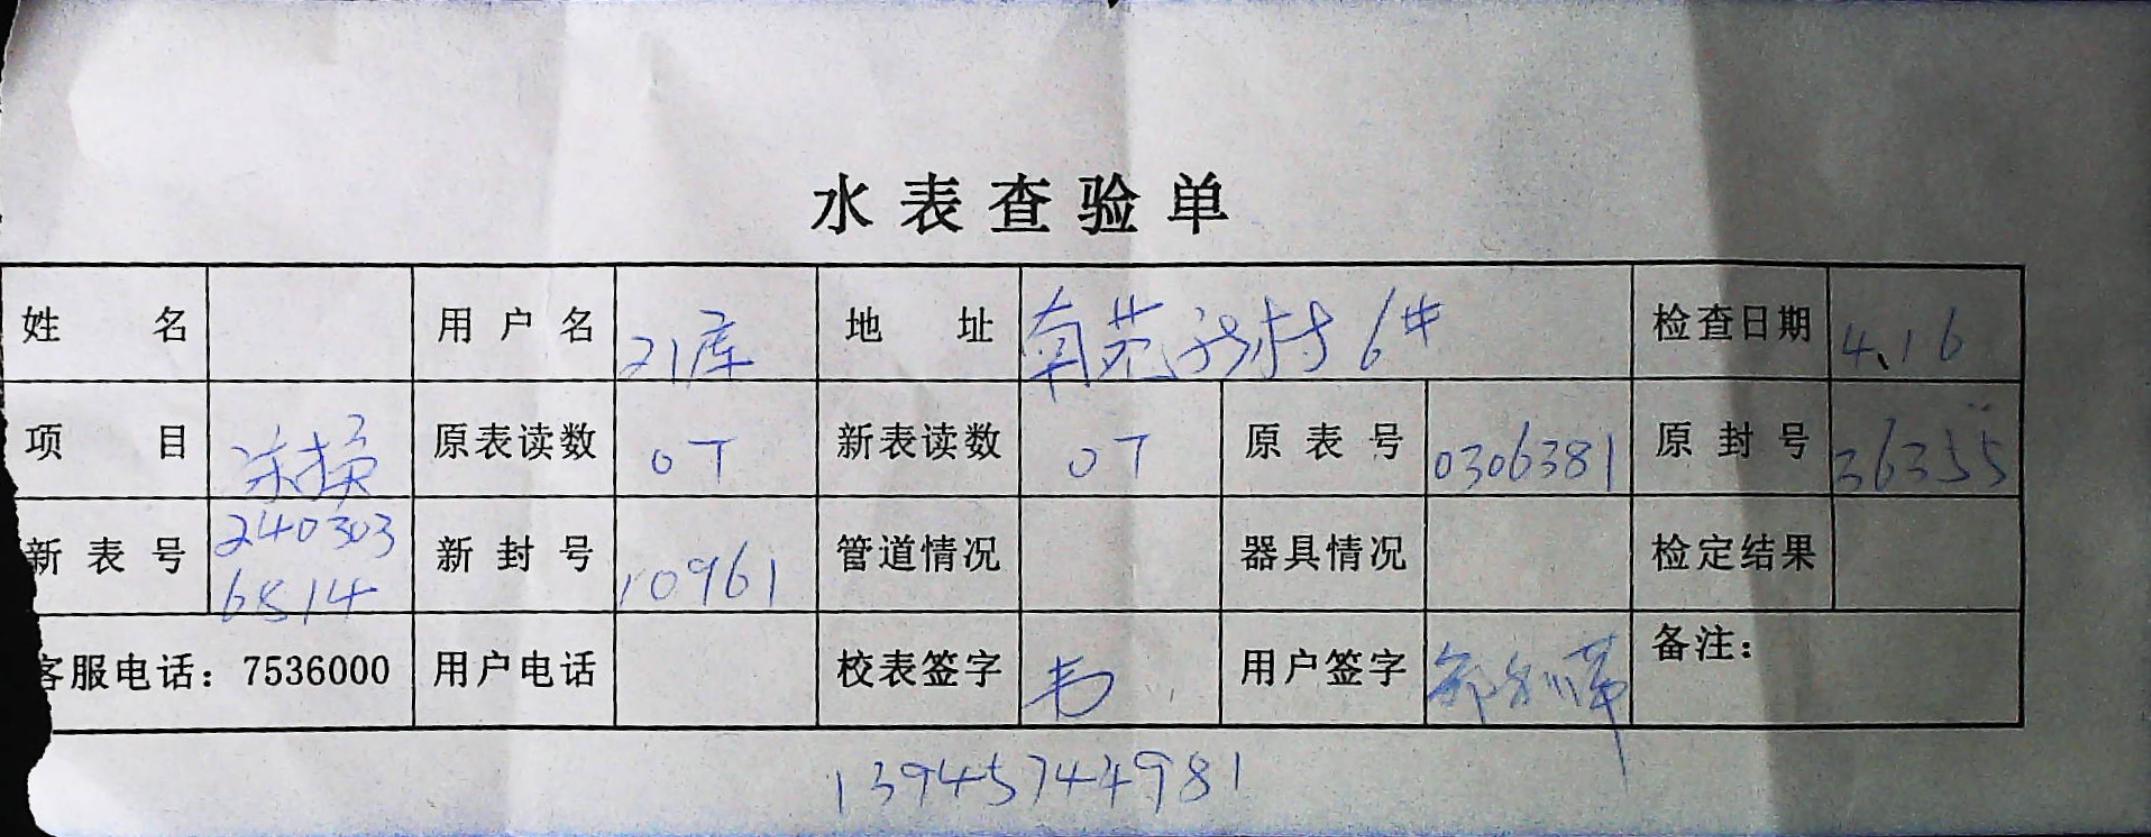 水表查验单
姓名 用户名 21库 地址 南苑新村6# 检查日期 4.16
项目 冻换 原表读数 0T 新表读数 0T 原表号 0306381 原封号 36355
新表号 2403036514 新封号 10961 管道情况 器具情况 检定结果
客服电话：7536000 用户电话 校表签字 韦 用户签字 备注：
13945744981